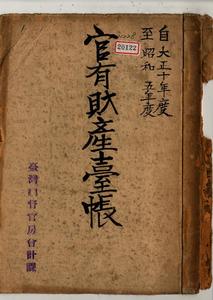 自大正十年度
至昭和五年度
20122
官有財產臺帳
臺灣日日官房會計課